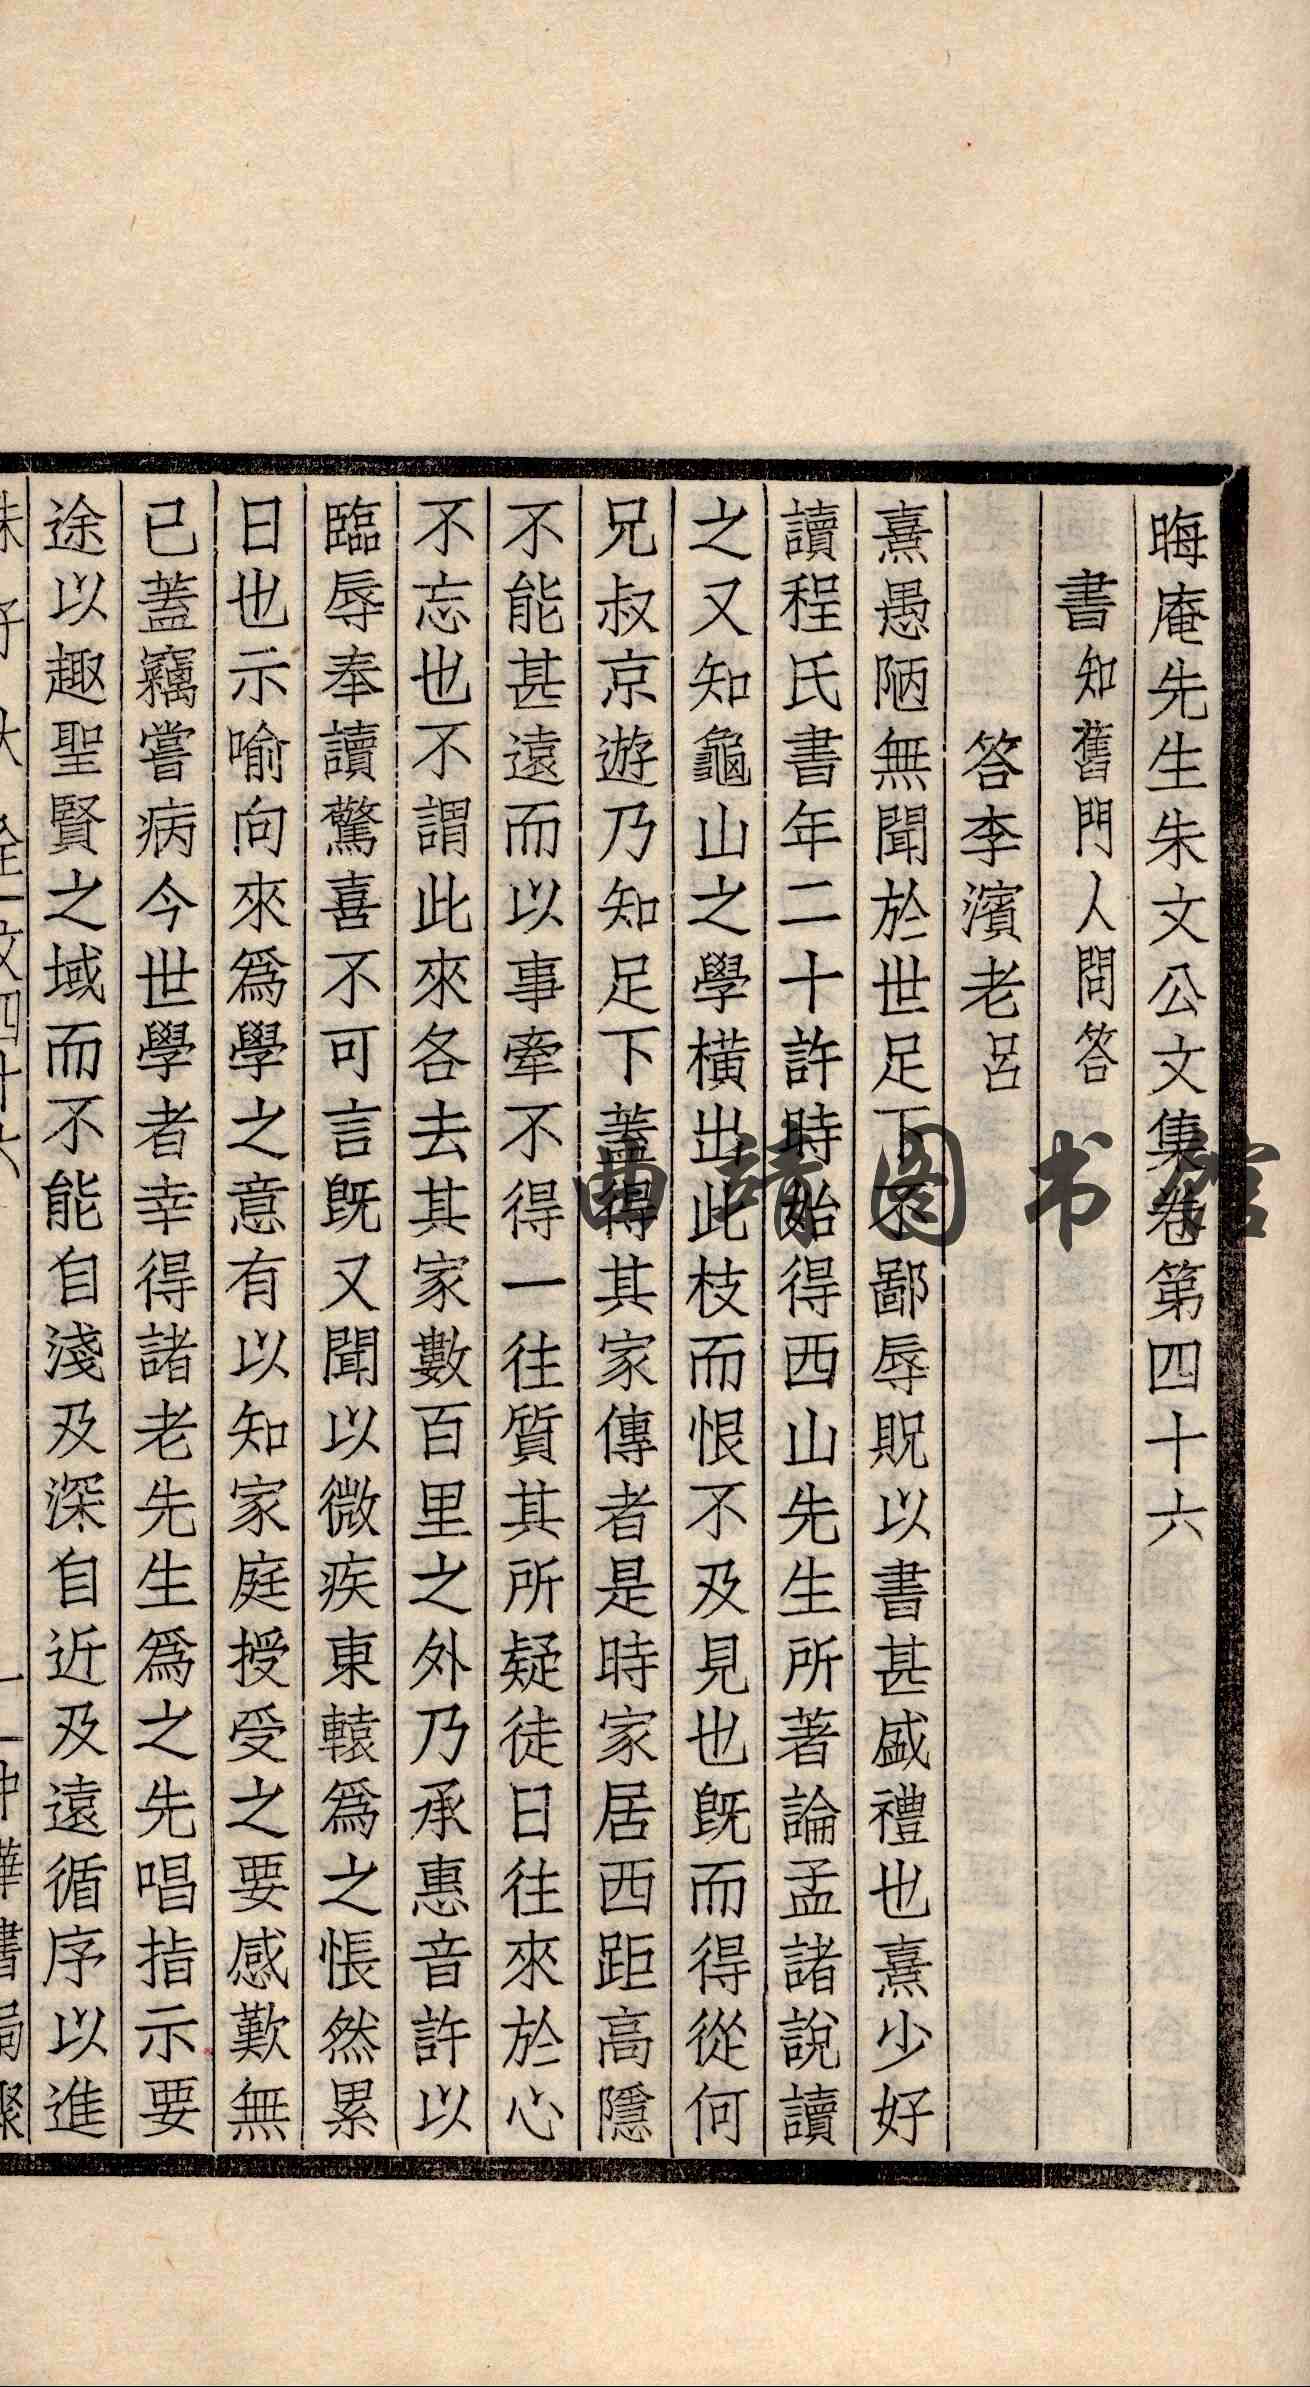 晦庵先生朱文公文集卷第四十六
書知舊門人問答
答李濱老呂
熹愚陋無聞於世足下不鄙辱貺以書甚盛禮也熹少好
讀程氏書年二十許時始得西山先生所著論孟諸說讀
之又知龜山之學橫出此枝而恨不及見也既而得從何
兄叔京遊乃知足下蓋得其家傳者是時家居西距高隱
不能甚遠而以事牽不得一往質其所疑徒日往來於心
不忘也不謂此來各去其家數百里之外乃承惠音許以
臨辱奉讀驚喜不可言既又聞以微疾東轅為之悵然累
日也示喻向來為學之意有以知家庭授受之要感歎無
已蓋竊嘗病今世學者幸得諸老先生為之先唱指示要
途以趣聖賢之域而不能自淺及深自近及遠循序以進
朱子大全 文四十六
一 中華書局聚
曲靖图书馆